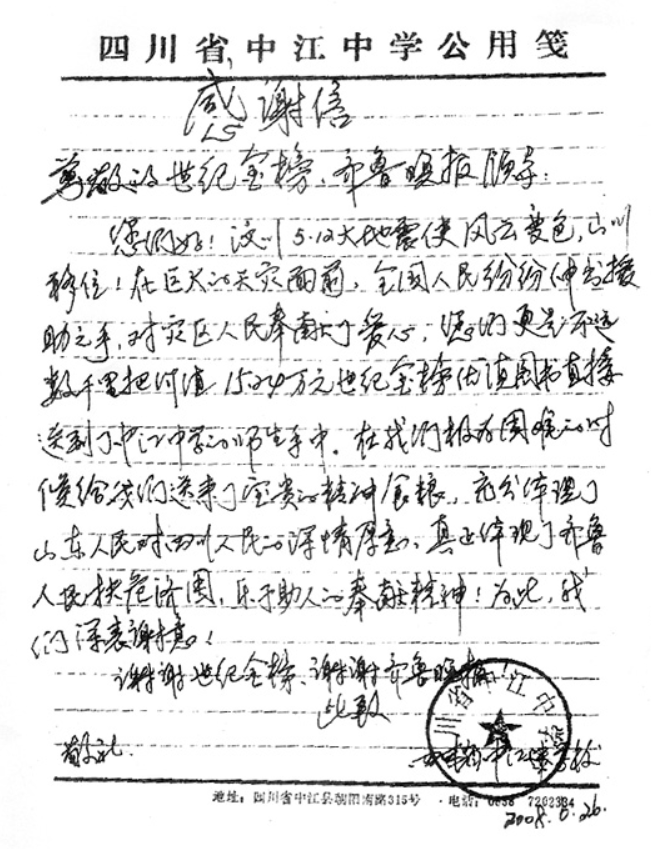 四川省中江中学公用笺
感谢信
尊敬的世纪金榜、齐鲁晚报领导:
您们好!汶川5.12大地震使风云变色,山川
移位!在巨大的天灾面前,全国人民纷纷伸出援
助之手,对灾区人民奉献了爱心,您们更是不远
数千里把价值15.24万元世纪金榜优质图书直接
送到了中江中学的师生手中。在我们极为困难的时
候给我们送来了宝贵的精神食粮,充分体现了
山东人民对四川人民的深情厚意,真正体现了齐鲁
人民扶危济困,乐于助人的奉献精神!为此,我
们深表谢意!
谢谢世纪金榜、谢谢齐鲁晚报
此致
敬礼
四川省中江中学
四川省中江中学校
地址:四川省中江县朝阳南路315号 · 电话:0838 7202384
2008.5.26.